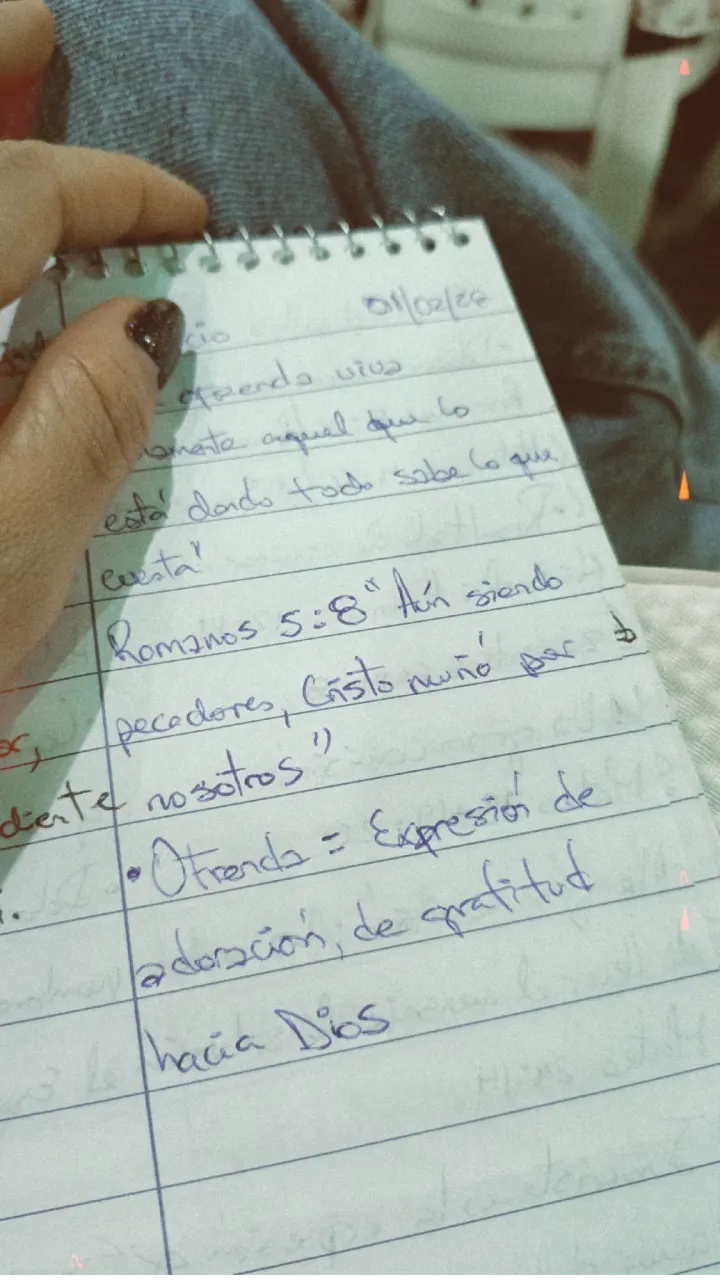 01/02/26
cio
ofrenda viva
amente aquel que lo
está dando todo sabe lo que
cuesta"
Romanos 5:8 "Aún siendo
pecadores, Cristo murió por
diente nosotros"
• Ofrenda = Expresión de
adoración, de gratitud
hacia Dios